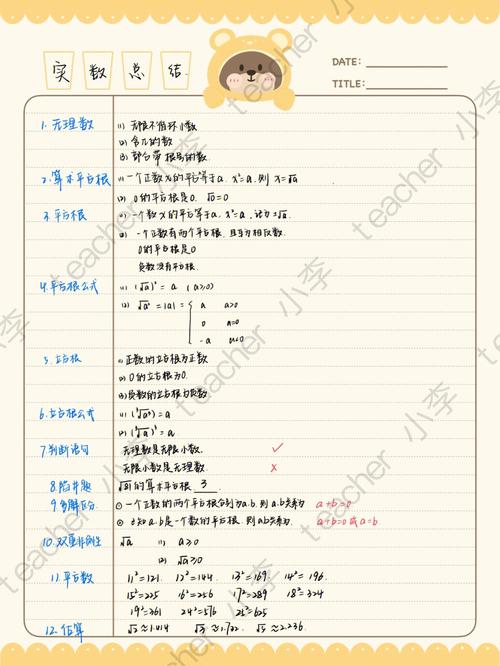 实数总结
DATE:
TITLE:
1.无理数
(1) 无限不循环小数
(2) 含π的数
(3) 部分带根号的数.
2.算术平方根
(1) 一个正数x的平方等于a, x²=a, 则 x=√a
(2) 0的平方根是0. √0=0
3.平方根
(1) 一个数x的平方等于a, x²=a, 记为±√a.
(2) 一个正数有两个平方根, 且互为相反数.
0的平方根是0
负数没有平方根.
4.平方根公式
(1) (√a)²=a (a≥0)
(2) √a²=|a|={ a a>0
0 a=0
-a a<0
5.立方根
(1) 正数的立方根为正数
(2) 0的立方根为0.
(3) 负数的立方根为负数
6.立方根公式
(1) (∛a³)=a
(2) (∛a)³=a
7.判断语句
无理数是无限小数. ✓
无限小数是无理数. ×
8.陷井题
的算术平方根 3
9.多解区分
① 一个正数的两个平方根分别为a.b. 则a.b关系为 a+b=0
② 已知a.b是一个数的平方根, 则ab关系为 a+b=0或a=b
10.双重非负性
√a (1) a≥0
(2) √a≥0
11.平方数
11²=121. 12²=144. 13²=169. 14²=196.
15²=225 16²=256 17²=289 18²=324
19²=361 24²=576 25²=625
12.估算
√2≈1.414 √3≈1.732 √5≈2.236.
teacher 小李
teacher 小李
teacher 小李
teacher 小李